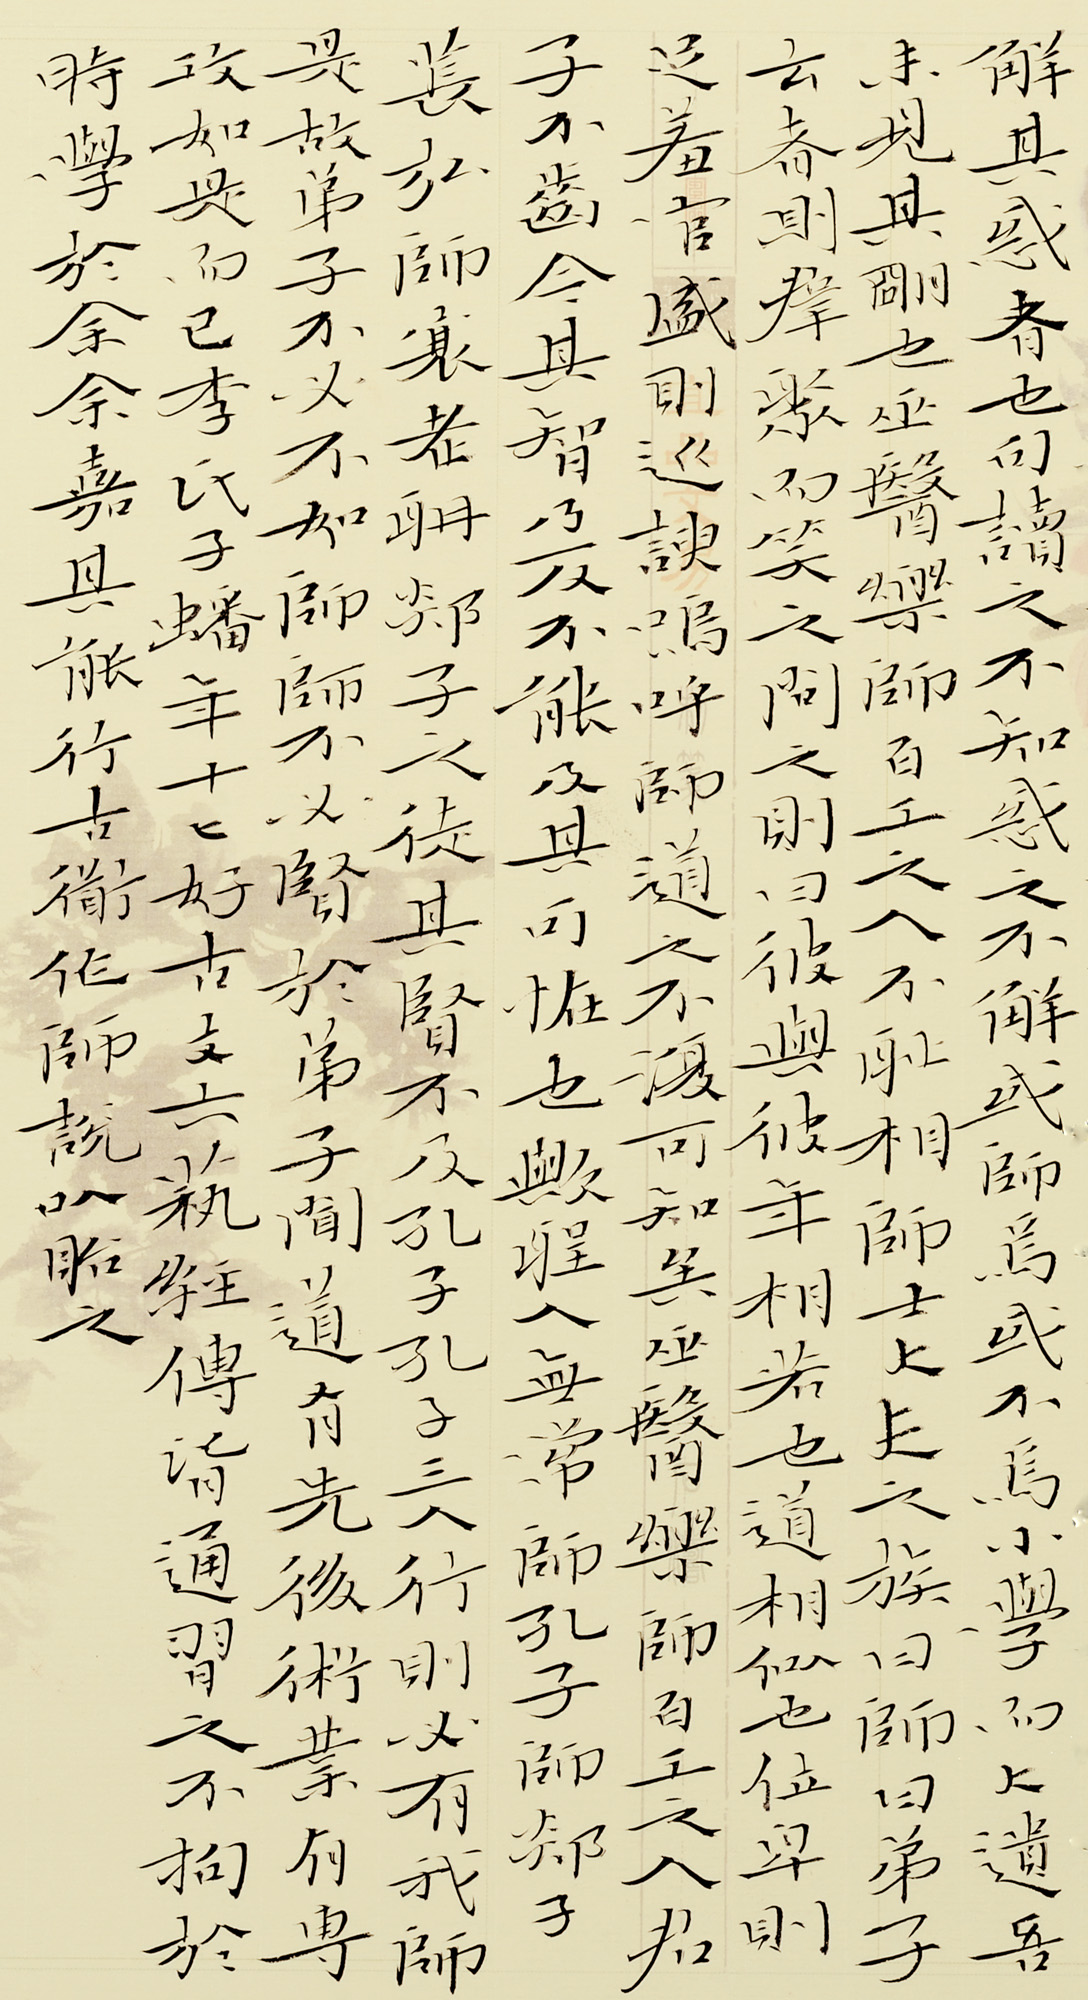 解其惑者也句讀之不知惑之不解或師焉或不焉小學而大遺吾
未見其明也巫醫樂師百工之人不耻相師士大夫之族曰師曰弟子
云者則群聚而笑之問之則曰彼與彼年相若也道相似也位卑則
足羞官盛則近諛嗚呼師道之不復可知矣巫醫樂師百工之人君
子不齒今其智乃反不能及其可恠也歟聖人無常師孔子師郯子
萇弘師襄老聃郯子之徒其賢不及孔子孔子三人行則必有我師
是故弟子不必不如師師不必賢於弟子聞道有先後術業有專
攻如是而已李氏子蟠年十七好古文六藝經傳皆通習之不拘於
時學於余余嘉其能行古衜作師說以貽之